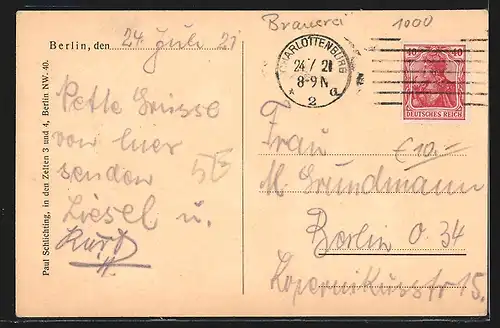 Brauerei 1000
Berlin, den 24 Juli 21
CHARLOTTENBURG
24.7.21
8-9 N
* 2 a
40 40
DEUTSCHES REICH
Nette Grüsse
von hier
senden
Liesel u.
Kurt
Frau
€ 10.-
M. Grundmann
Berlin O. 34
Kopernikusstr 15.
Paul Schlichting, in den Zelten 3 und 4, Berlin NW. 40.